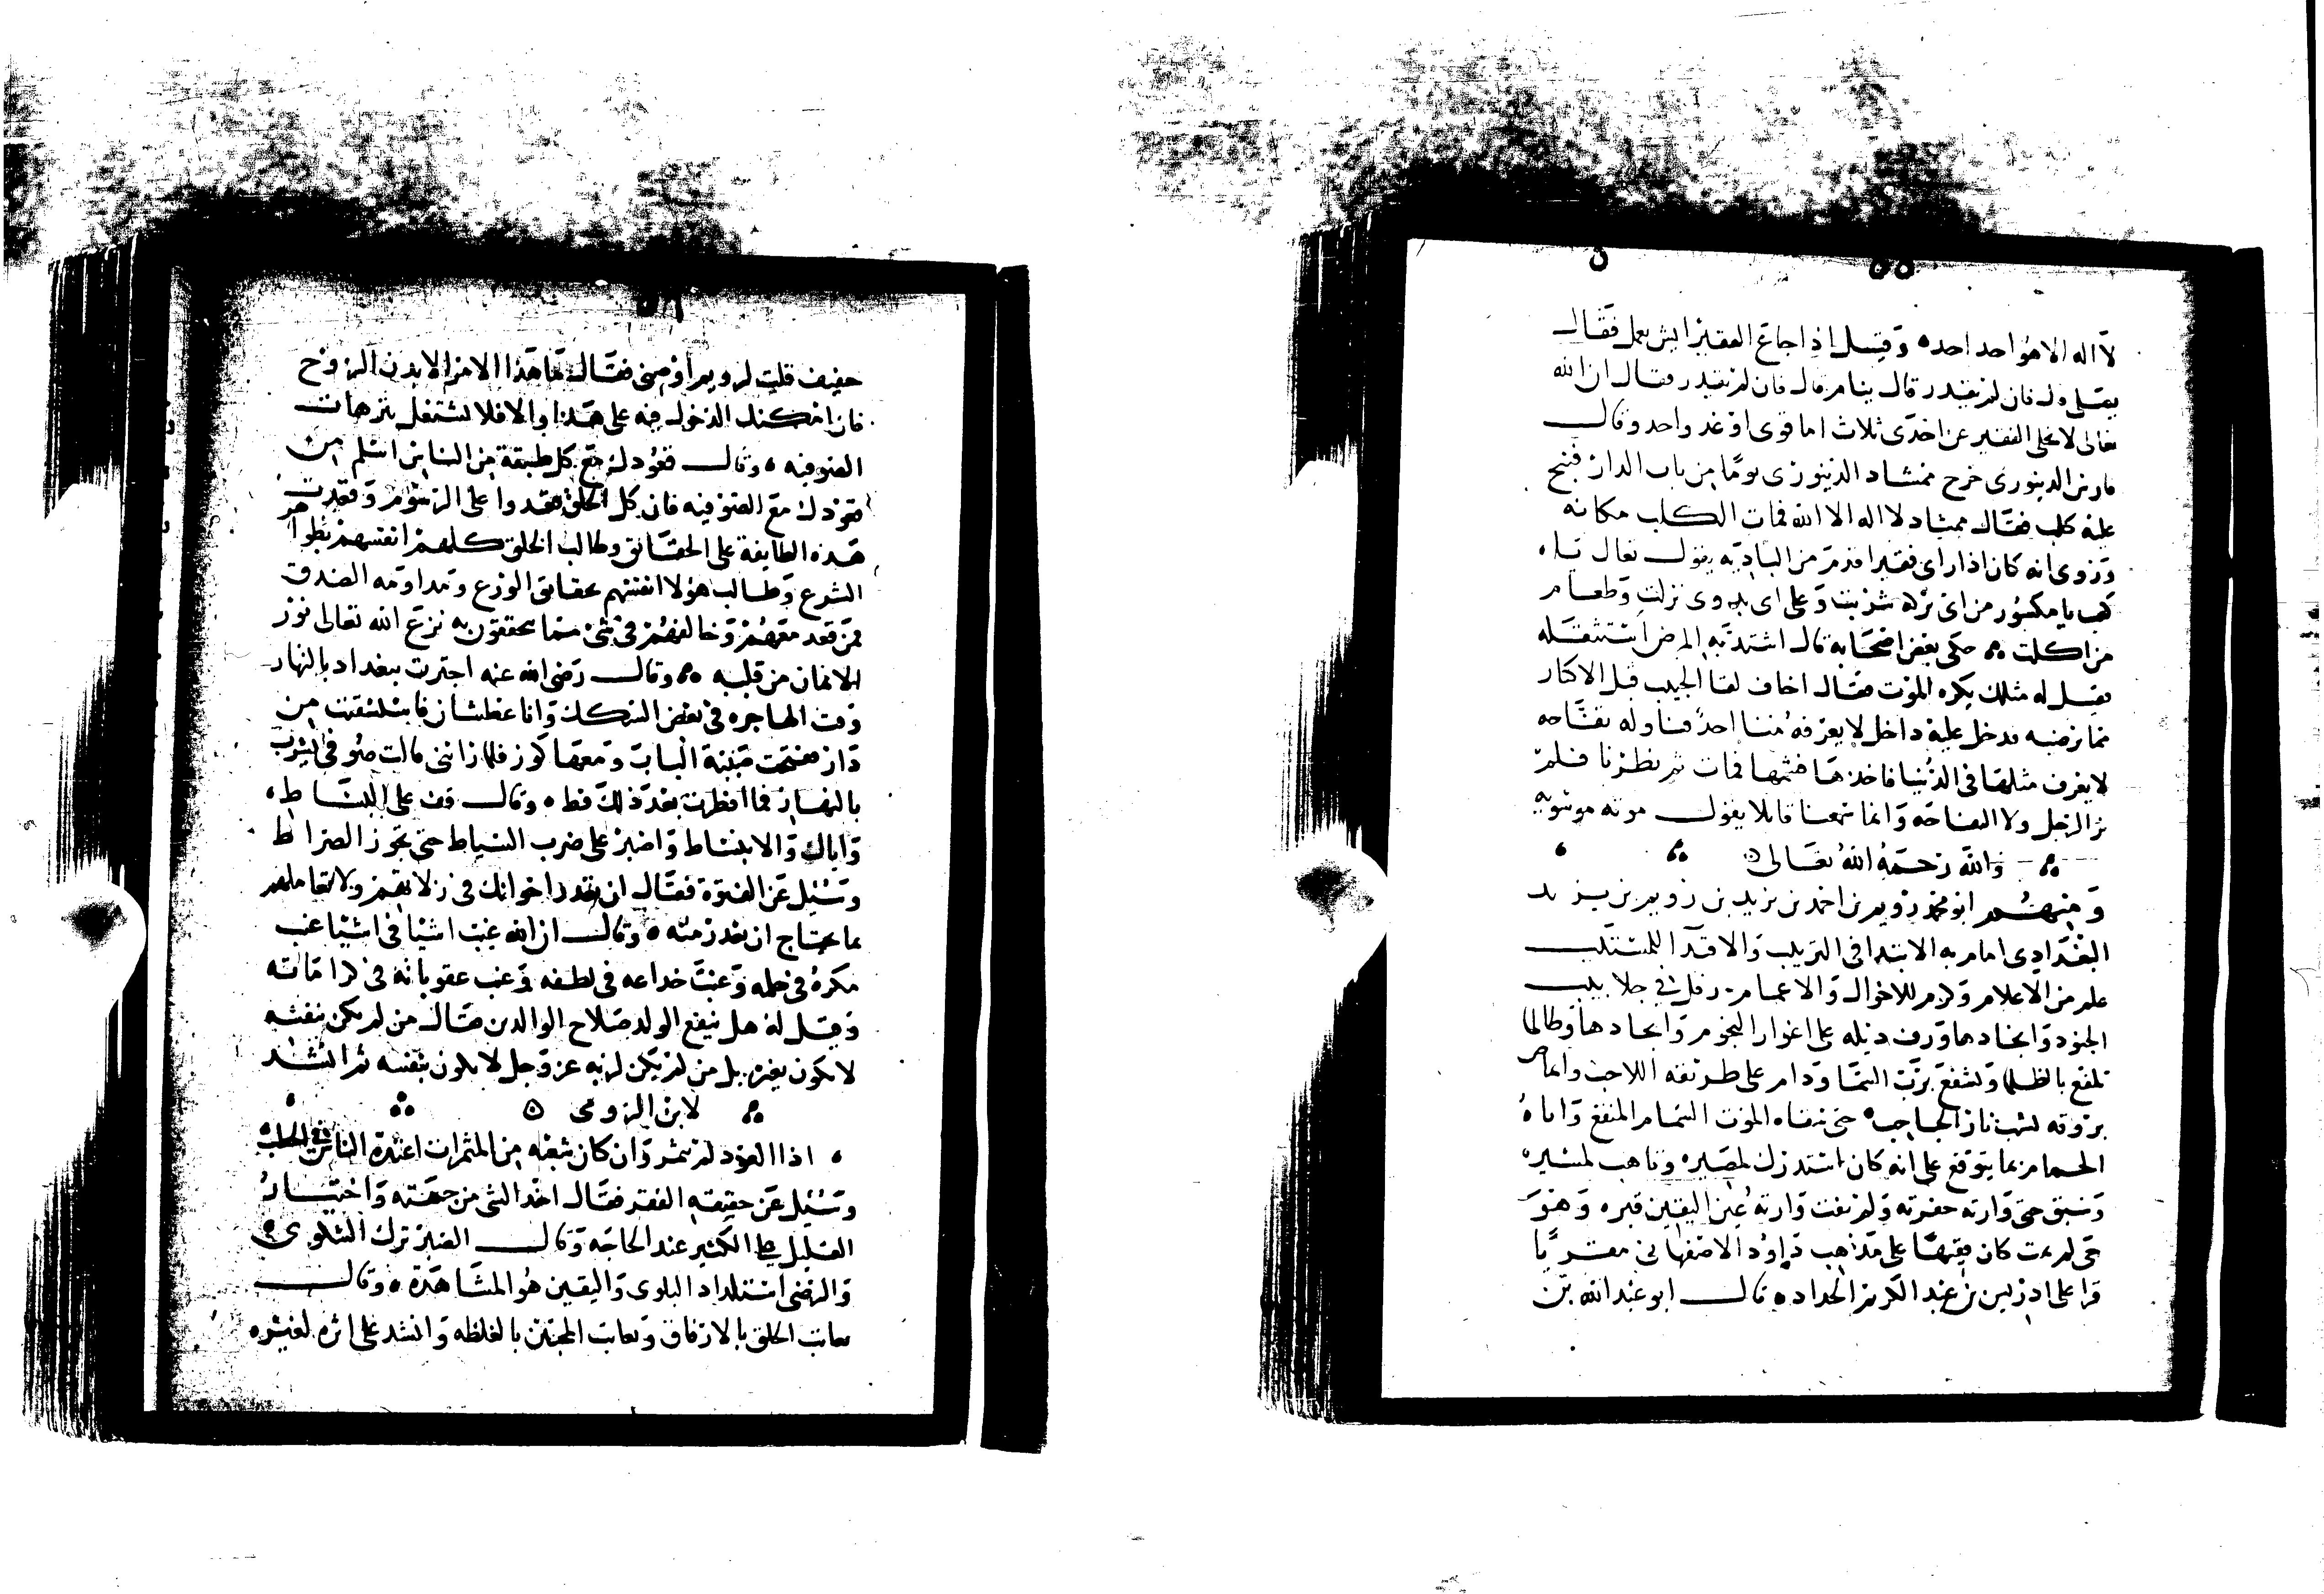 ٥٥
لا اله الا هو احد احد وقيل اذا جاع الفقير ايش يعمل فقال
يصلى قيل فان لم يقدر قال ينام قال فان لم يقدر فقال ان الله
تعالى لا يخلى الفقير عن احدى ثلاث اما قوى او غد واحد وقال
فارس الدينورى خرج ممشاد الدينورى يوما من باب الدار فنبح
عليه كلب فقال ممشاد لا اله الا الله فمات الكلب مكانه
وروى انه كان اذا راى فقيرا قدم من البادية يقول تعال
يا مكسور من اى بركة شربت وعلى اى بدوى نزلت وطعام
من اكلت حكى بعض اصحابه قال اشتد به المرض
فقيل له مثلك يكره الموت فقال اخاف لقا الحبيب قبل الاكثار
مما يرضيه فدخل عليه داخل لا يعرفه منا احد فناوله تفاحه
لا يعرف مثلها فى الدنيا فاخذها فشمها فمات ثم نظرنا فلم
نر الرجل ولا التفاحه وانما سمعنا قايلا يقول
والله رحمه الله تعالى
ومنهم ابو محمد رويم بن احمد بن يزيد بن رويم بن يزيد
البغدادى امام به الابتدا فى الترتيب والاقتدا
علم من الاعلام وكرم للاخوال والاعمام رفل فى جلابيب
على اغوار النجوم وانجادها وطالما
تلفع بالظلما وتشفع برب السما ودام على طريقه اللاحب
حتى تغشاه الموت
الحمام بما يتوقع على انه كان استدرك لمصيره وتاهب لمسيره
وسبق حتى وارته حفرته ولم تفت وارته عين اليقين قبره وهو
حى لم يمت كان فقيها على مذهب داود الاصفهانى مقريا
قرا على ادريس بن عبد الكريم الحداد قال ابو عبد الله بن
٥٦
خفيف قلت لرويم اوصنى فقال ما هذا الامر الا بدن الروح
فان امكنك الدخول فيه على هذا والا فلا تشتغل بترهات
الصوفيه وقال قعودك مع كل طبقة من الناس اسلم من
قعودك مع الصوفيه فان كل الخلق قعدوا على الرسوم وقعدت
هذه الطايفة على الحقائق وطالب الخلق كلهم انفسهم بظواهر
الشرع وطالب هؤلا انفسهم بحقايق الورع ومداومه الصدق
فمن قعد معهم وخالفهم فى شئ مما يتحققون به نزع الله تعالى نور
الايمان من قلبه وقال رضى الله عنه اجتزت ببغداد بالنهار
وقت الهاجره فى بعض السكك وانا عطشان فاستسقيت من
دار ففتحت صبية الباب ومعها كوز فلما راتنى قالت صوفى يشرب
بالنهار فما افطرت بعد ذلك قط وقال قف على البساط
واياك والانبساط واصبر على ضرب السياط حتى تجوز الصراط
وسئل عن الفتوة فقال ان تعذر اخوانك فى زلاتهم ولا تعاملهم
بما يحتاج ان تعذر منه وقال ان الله غيب اشيا فى اشيا غيب
مكره فى حلمه وغيب خداعه فى لطفه وغيب عقوباته فى كراماته
وقيل له هل ينفع الولد صلاح الوالدين فقال من لم يكن بنفسه
لا يكون بغيره بل من لم يكن لربه عز وجل لا يكون بنفسه ثم انشد
لابن الرومى
اذا العود لم يثمر وان كان شعبه من المثمرات اعتده الناس فى الحطب
وسئل عن حقيقه الفقر فقال اخذ الشى من جهته واختيار
القليل على الكثير عند الحاجه وقال الصبر ترك الشكوى
والرضى استلذاذ البلوى واليقين هو المشاهدة وقال
تعاتب الخلق بالارفاق وتعاتب المحبين بالغلظه وانشد على اثره لغيره